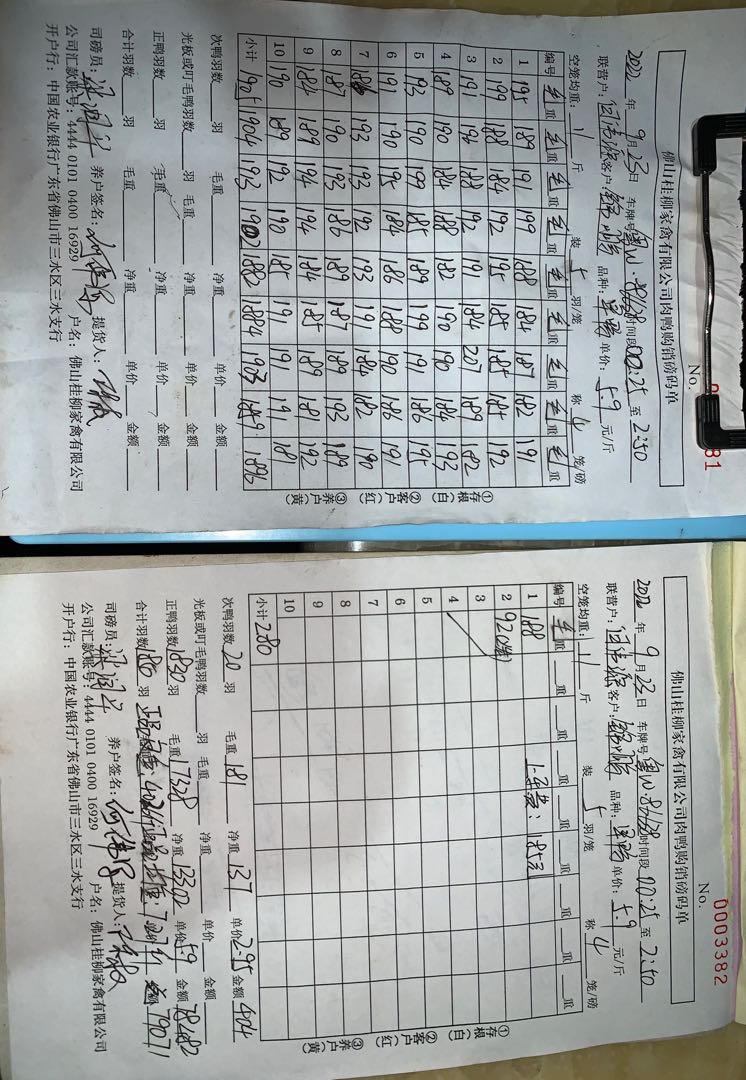 佛山桂柳家禽有限公司肉鸭购销磅码单
No. 81
2022 年 9 月 23 日 车牌号 时间段 00:25 至 2:50
联营户: 客户: 品种: 单价: 5.9 元/斤
空笼均重: 11 斤 装 5 羽/笼 称 4 笼/磅
编号 毛重 毛重 毛重 毛重 毛重 毛重 毛重 毛重 毛重
1 195 189 191 199 188 184 187 182 191
2 199 188 184 192 195 185 185 185 192
3 191 196 188 192 191 184 207 189 182
4 189 190 184 188 182 190 190 184 193
5 193 190 199 185 189 199 191 186 195
6 191 190 195 184 186 188 190 186 191
7 186 193 193 192 193 191 184 182 190
8 187 190 193 186 189 187 189 193 189
9 184 189 194 194 184 185 189 181 192
10 190 189 192 190 185 191 191 191 181
小计 1905 1904 1913 1902 1882 1884 1903 1859 1896
①存根(白) ②客户(红) ③养户(黄)
次鸭羽数 羽 毛重 净重 单价 金额
光板或叮毛鸭羽数 羽 毛重 净重 单价 金额
正鸭羽数 羽 毛重 净重 单价 金额
合计羽数 羽 毛重 净重 单价 金额
司磅员: 养户签名: 提货人:
公司汇款账号: 4444 0101 0400 16929 户名: 佛山桂柳家禽有限公司
开户行: 中国农业银行广东省佛山市三水区三水支行
佛山桂柳家禽有限公司肉鸭购销磅码单
No. 0003382
2022 年 9 月 23 日 车牌号 时间段 00:25 至 2:50
联营户: 客户: 品种: 单价: 5.9 元/斤
空笼均重: 11 斤 装 5 羽/笼 称 4 笼/磅
编号 毛重 重 重 重 重 重 重 重 重
1 188
2 92
3
4
5
6
7
8
9
10
小计 280
①存根(白) ②客户(红) ③养户(黄)
次鸭羽数 20 羽 毛重 181 净重 137 单价 2.95 金额 404
光板或叮毛鸭羽数 羽 毛重 净重 单价 金额
正鸭羽数 1830 羽 毛重 17328 净重 13302 单价 5.9 金额 78482
合计羽数 羽
司磅员: 养户签名: 提货人:
公司汇款账号: 4444 0101 0400 16929 户名: 佛山桂柳家禽有限公司
开户行: 中国农业银行广东省佛山市三水区三水支行